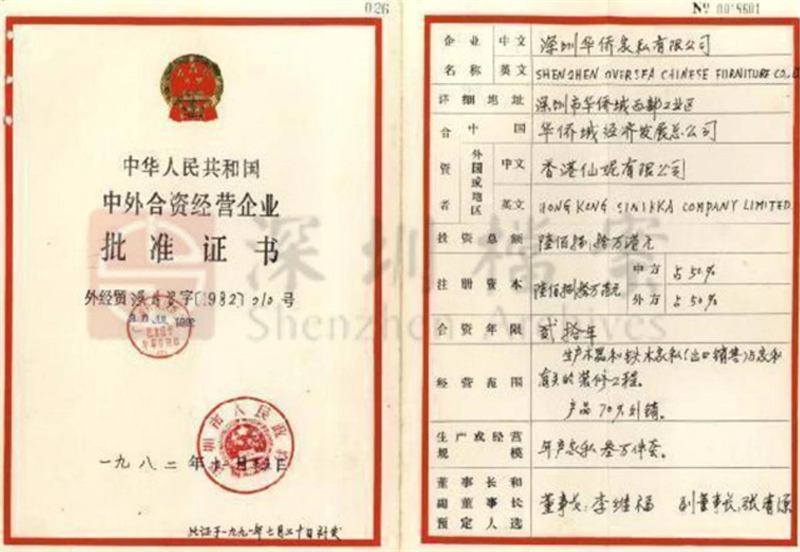 026
中华人民共和国
中外合资经营企业
批准证书
外经贸深
字〔1982〕010号
一九八二年
此证于一九九一年七月三十日补发
深圳档案
Shenzhen Archives
№
企业名称
中文
深圳华侨家私有限公司
英文
SHENZHEN OVERSEA CHINESE FURNITURE CO.,
详细地址
深圳市华侨城西部工业区
合资者
中国
华侨城经济发展总公司
外国或地区
中文
香港仙妮有限公司
英文
HONG KONG SINIKKA COMPANY LIMITED
投资总额
陆佰捌拾万港元
注册资本
陆佰捌拾万港元
中方
占50%
外方
占50%
合资年限
贰拾年
经营范围
生产木器和软木家私(出口销售)与家私
有关的装修工程。
产品70%外销。
生产或经营规模
年产家私叁万件套。
董事长和副董事长预定人选
董事长:李继福 副董事长:张